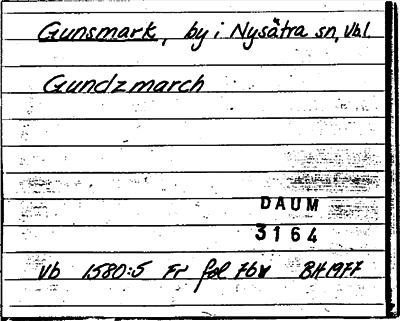 Gunsmark, by i Nysätra sn, Vbl.
Gundzmarch
DAUM
3164
Vb 1580:5 Fr fol 7bv BH 1977